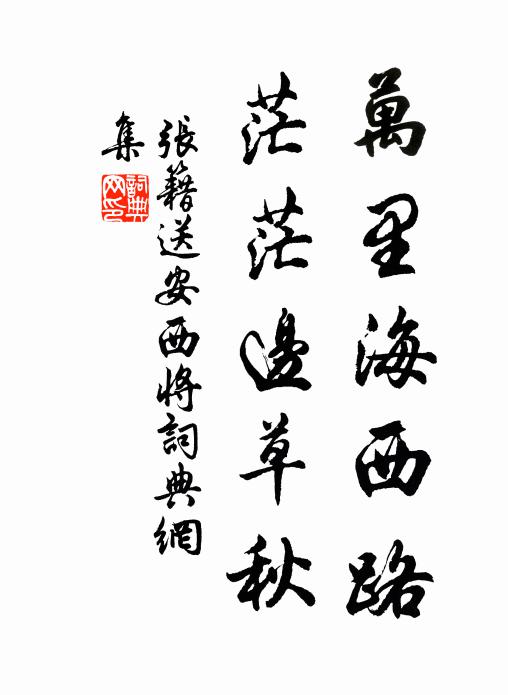 萬里海西路
茫茫邊草秋
張籍送安西將詞典網
集
詞典网印